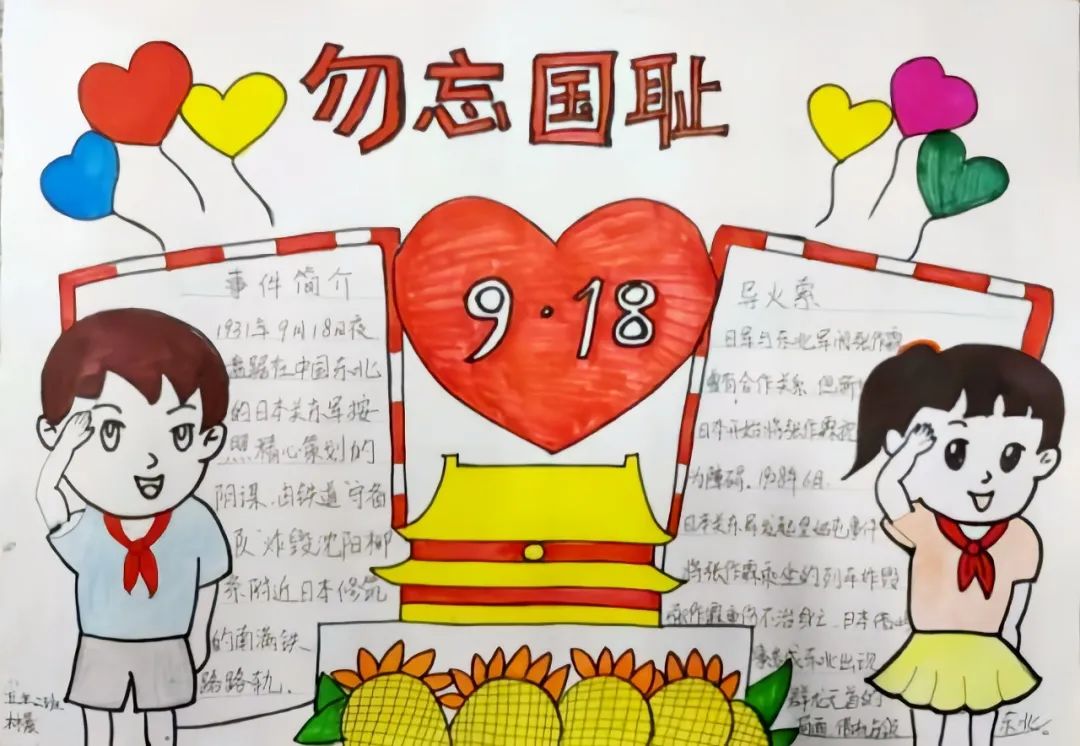 勿忘国耻
9·18
事件简介
1931年9月18日夜
盘踞在中国东北
的日本关东军按
照精心策划的
阴谋、由铁道守备
队炸毁沈阳柳
条附近日本修筑
的南满铁
路路轨.
导火索
日军与东北军阀张作霖
有合作关系
日本开始将张作霖视
为障碍.1928年6月.
日本关东军发起皇姑屯事件
将张作霖乘坐的列车炸毁
张作霖重伤不治身亡.日本
东北出现
群龙无首的
东北。
五年二班